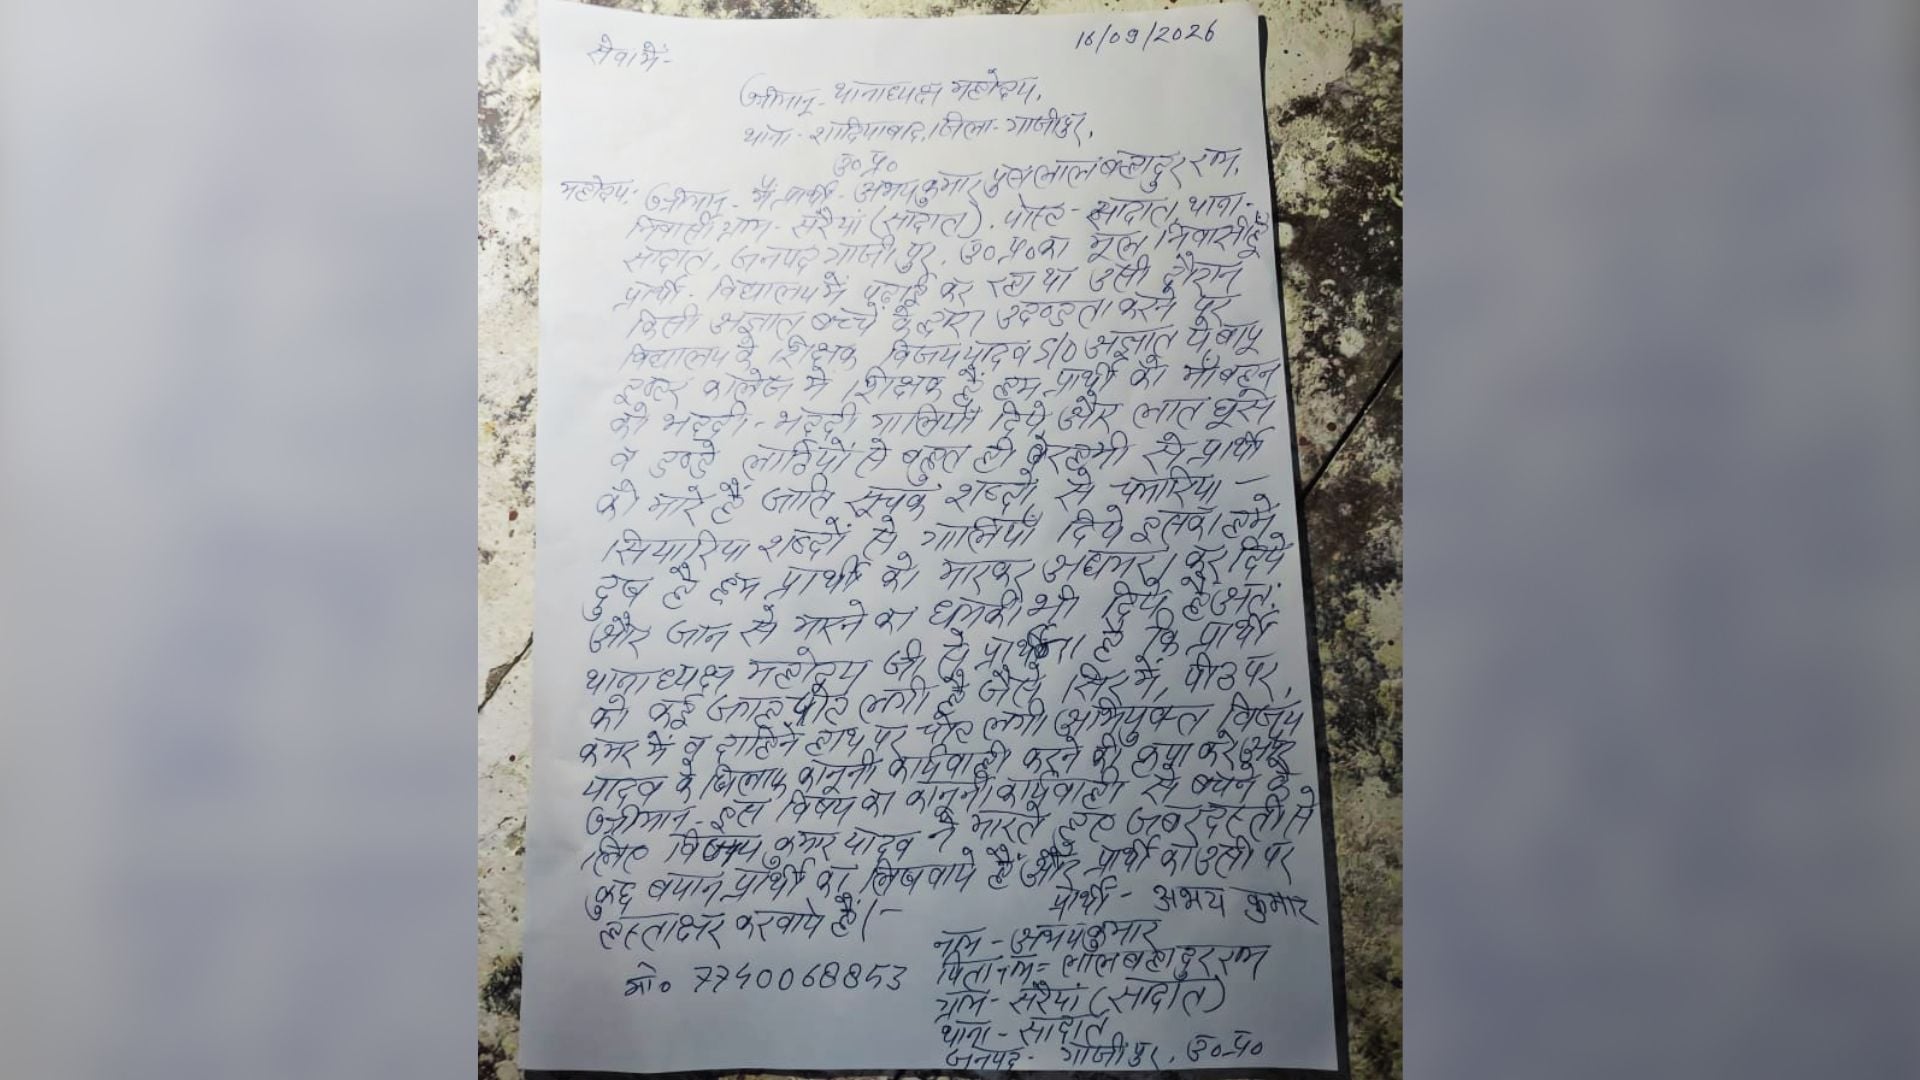 16/09/2026
सेवा में-
श्रीमान्- थानाध्यक्ष महोदय,
थाना- शादियाबाद, जिला- गाजीपुर,
उ०प्र०
महोदय, श्रीमान- मैं प्रार्थी- अभय कुमार पुत्र लाल बहादुर राम,
निवासी ग्राम- सरैयां (सादात), पोस्ट- सादात, थाना-
सादात, जनपद गाजीपुर, उ०प्र० का मूल निवासी हूँ
प्रार्थी- विद्यालय में पढ़ाई कर रहा था उसी दौरान
किसी अज्ञात बच्चे के द्वारा उदण्डता करने पर
विद्यालय के शिक्षक विजय यादव S/O अज्ञात ये बापू
इण्टर कालेज में शिक्षक हैं हम प्रार्थी को माँ बहन
की भद्दी-भद्दी गालियाँ दिये और लात घूसे
व डण्डे लाठियों से बहुत ही बेरहमी से प्रार्थी
को मारे हैं जाति सूचक शब्दों से चमारिया-
सियारिया शब्दों से गालियाँ दिये इसका हमें
दुख है हम प्रार्थी को मारकर अधमरा कर दिये
और जान से मारने का धमकी भी दिये है अतः
थानाध्यक्ष महोदय जी से प्रार्थना है कि प्रार्थी
को कई जगह चोट लगी है जैसे सिर में, पीठ पर,
कमर में व दाहिने हाथ पर चोट लगी अभियुक्त विजय
यादव के खिलाफ कानूनी कार्यवाही करने की कृपा करें और
श्रीमान- इस विषय का कानूनी कार्यवाही से बचने के
लिए विजय कुमार यादव ने मारते हुए जबरदस्ती से
कुछ बयान प्रार्थी का लिखवाये हैं और प्रार्थी का उसी पर
हस्ताक्षर करवाये हैं।-
प्रार्थी- अभय कुमार
नाम- अभय कुमार
पिता नाम= लाल बहादुर राम
ग्राम- सरैयां (सादात)
थाना- सादात
जनपद- गाजीपुर, उ०प्र०
मो० 7740068853